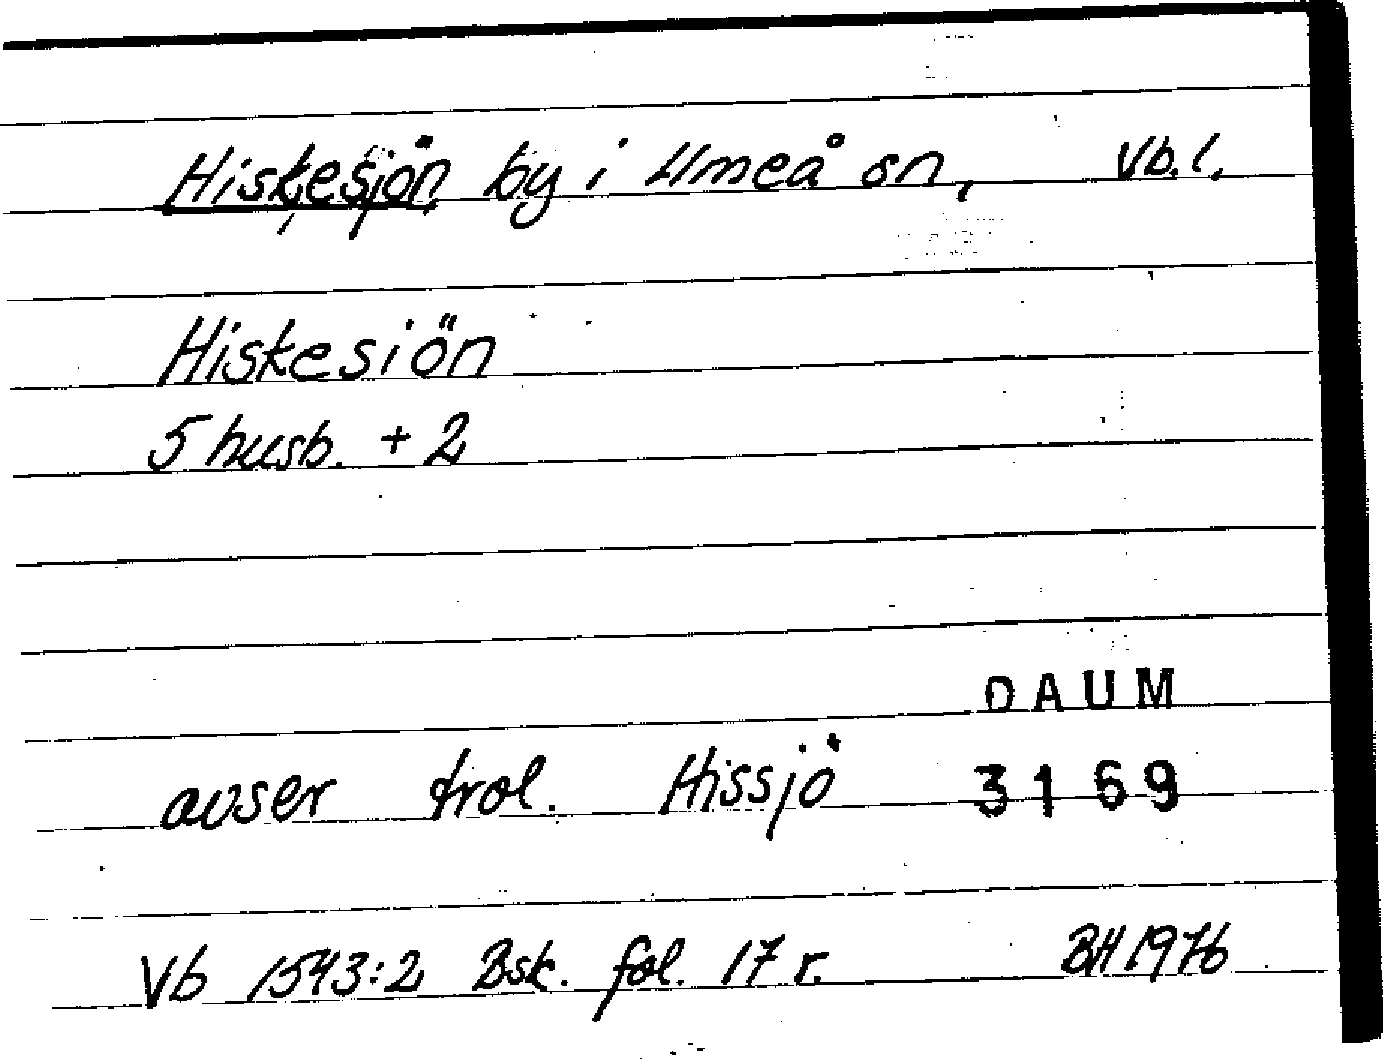 Hiskesjön by i Umeå sn, Vb.l.
Hiskesiön
5 husb. + 2
DAUM
avser trol. Hissjö 3169
Vb 1543:2 Bsk. fol. 17 r. BH 1976